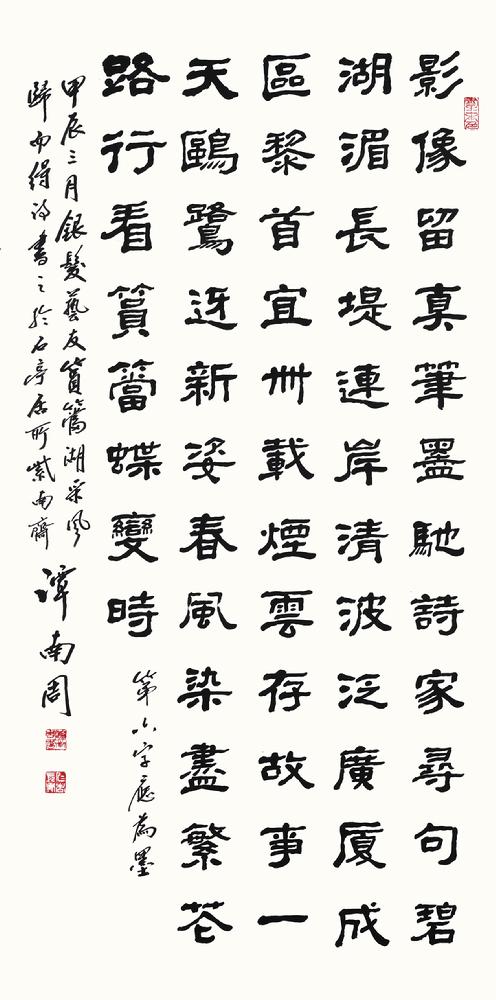 影像留真筆墨馳詩家尋句碧
湖湄長堤連岸清波泛廣廈成
區黎首宜卌載煙雲存故事一
天鷗鷺迓新姿春風染盡繁花
路行看篔簹蝶變時
第六字應為墨
甲辰三月銀髮藝友篔簹湖采風
歸而得詩書之於石亭居所紫南齋
譚南周